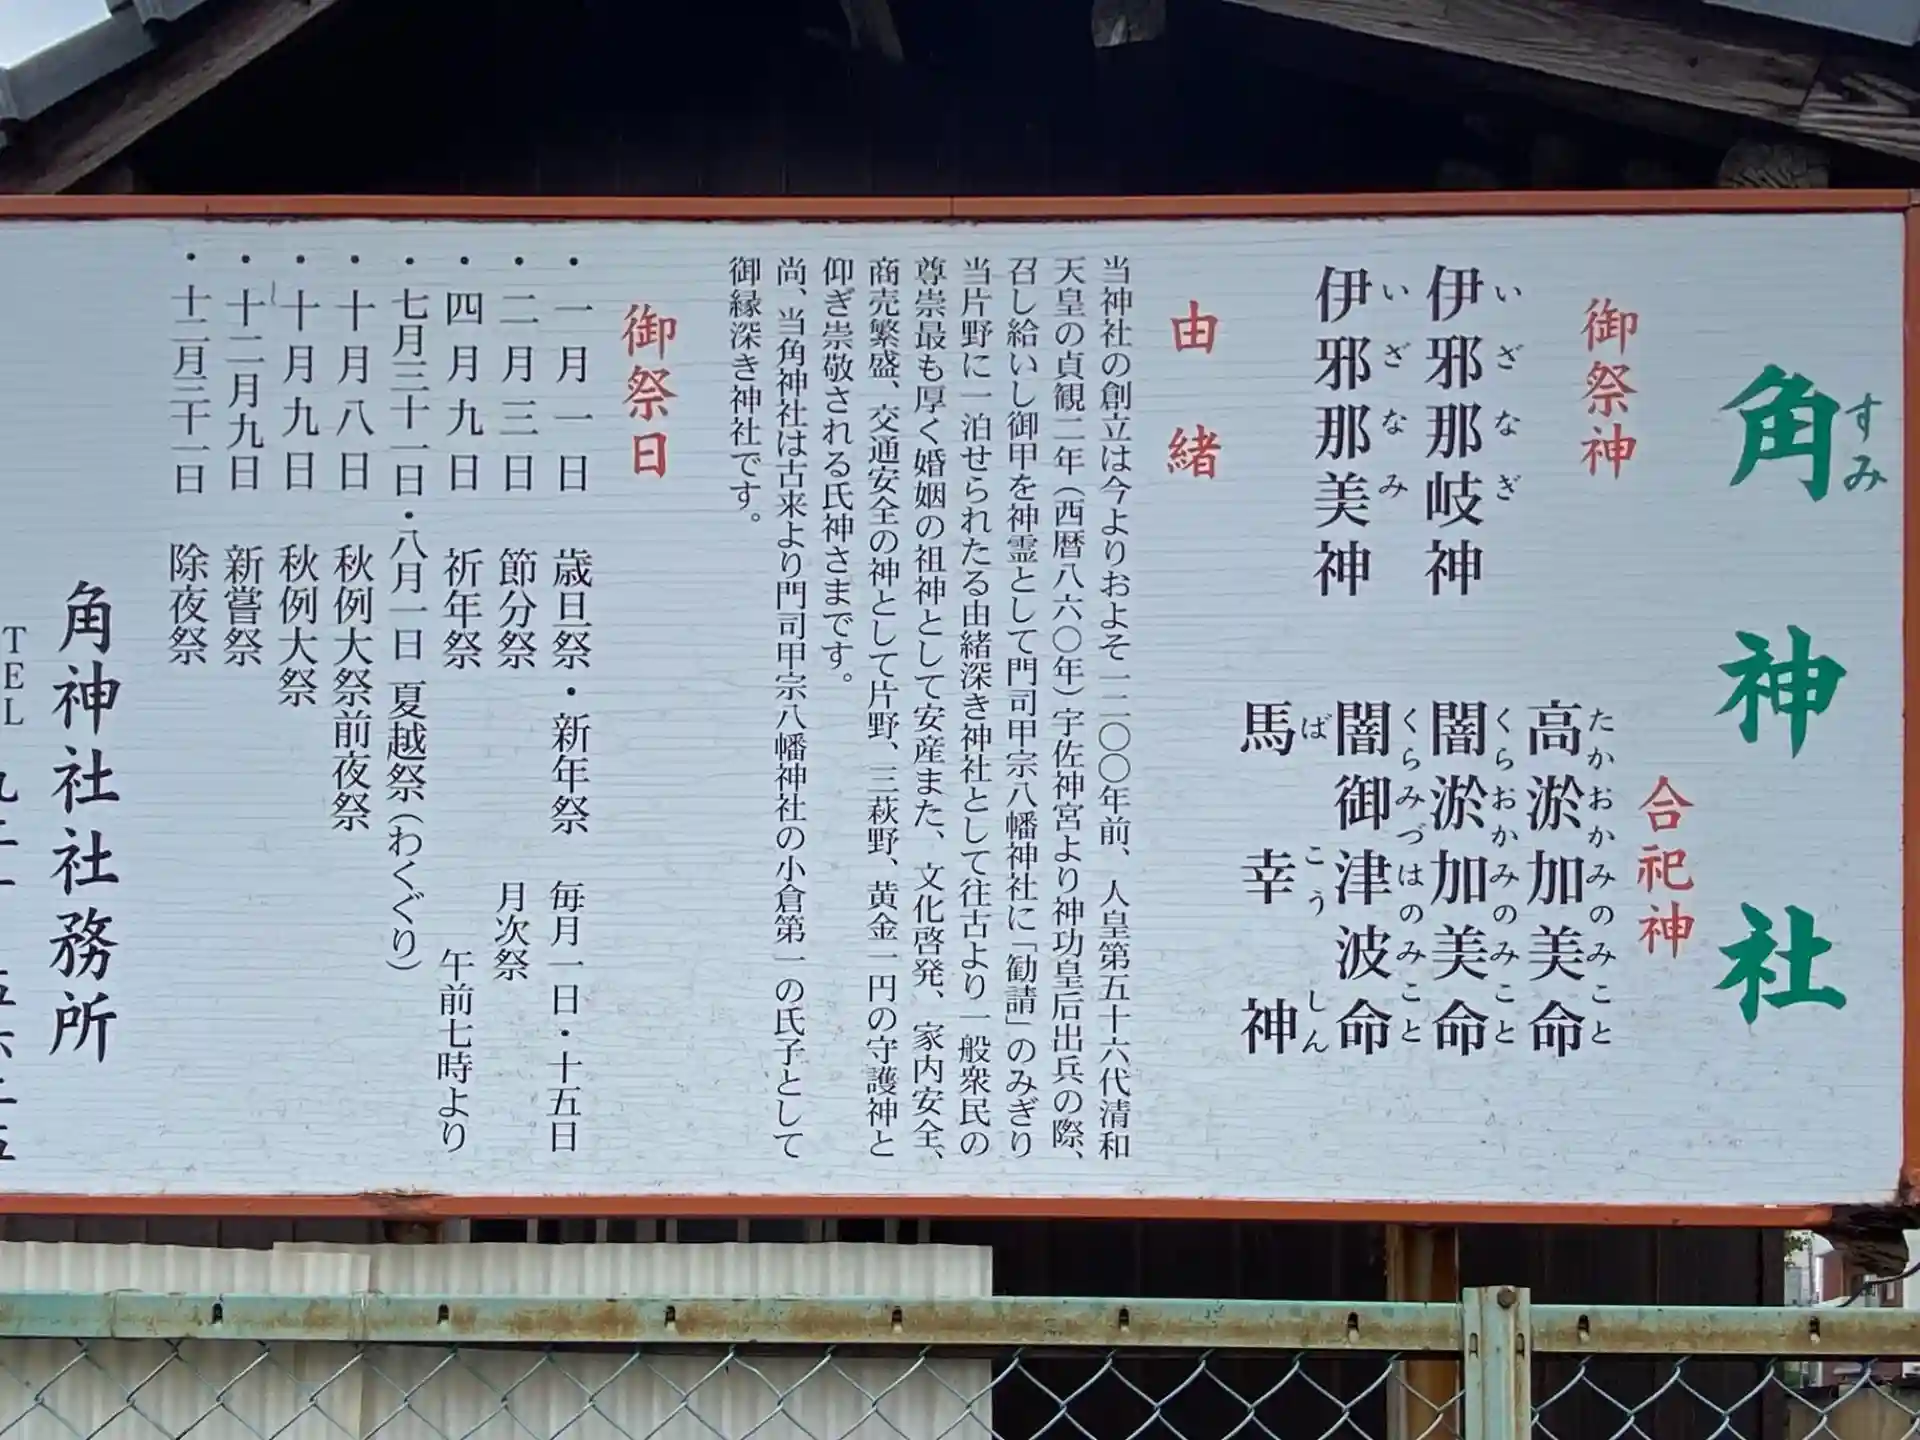 角神社
すみ
御祭神
伊邪那岐神
いざなぎ
伊邪那美神
いざなみ
合祀神
高淤加美命
たかおかみのみこと
闇淤加美命
くらおかみのみこと
闇御津波命
くらみづはのみこと
馬幸神
ばこうしん
由緒
当神社の創立は今よりおよそ一二〇〇年前、人皇第五十六代清和
天皇の貞観二年(西暦八六〇年)宇佐神宮より神功皇后出兵の際、
召し給いし御甲を神霊として門司甲宗八幡神社に「勧請」のみぎり
当片野に一泊せられたる由緒深き神社として往古より一般衆民の
尊崇最も厚く婚姻の祖神として安産また、文化啓発、家内安全、
商売繁盛、交通安全の神として片野、三萩野、黄金一円の守護神と
仰ぎ崇敬される氏神さまです。
尚、当角神社は古来より門司甲宗八幡神社の小倉第一の氏子として
御縁深き神社です。
御祭日
・一月一日 歳旦祭・新年祭
・二月三日 節分祭
・四月九日 祈年祭
・七月三十一日・八月一日 夏越祭(わくぐり)
・十月八日 秋例大祭前夜祭
・十月九日 秋例大祭
・十二月九日 新嘗祭
・十二月三十一日 除夜祭
毎月一日・十五日
月次祭
午前七時より
角神社社務所
TEL